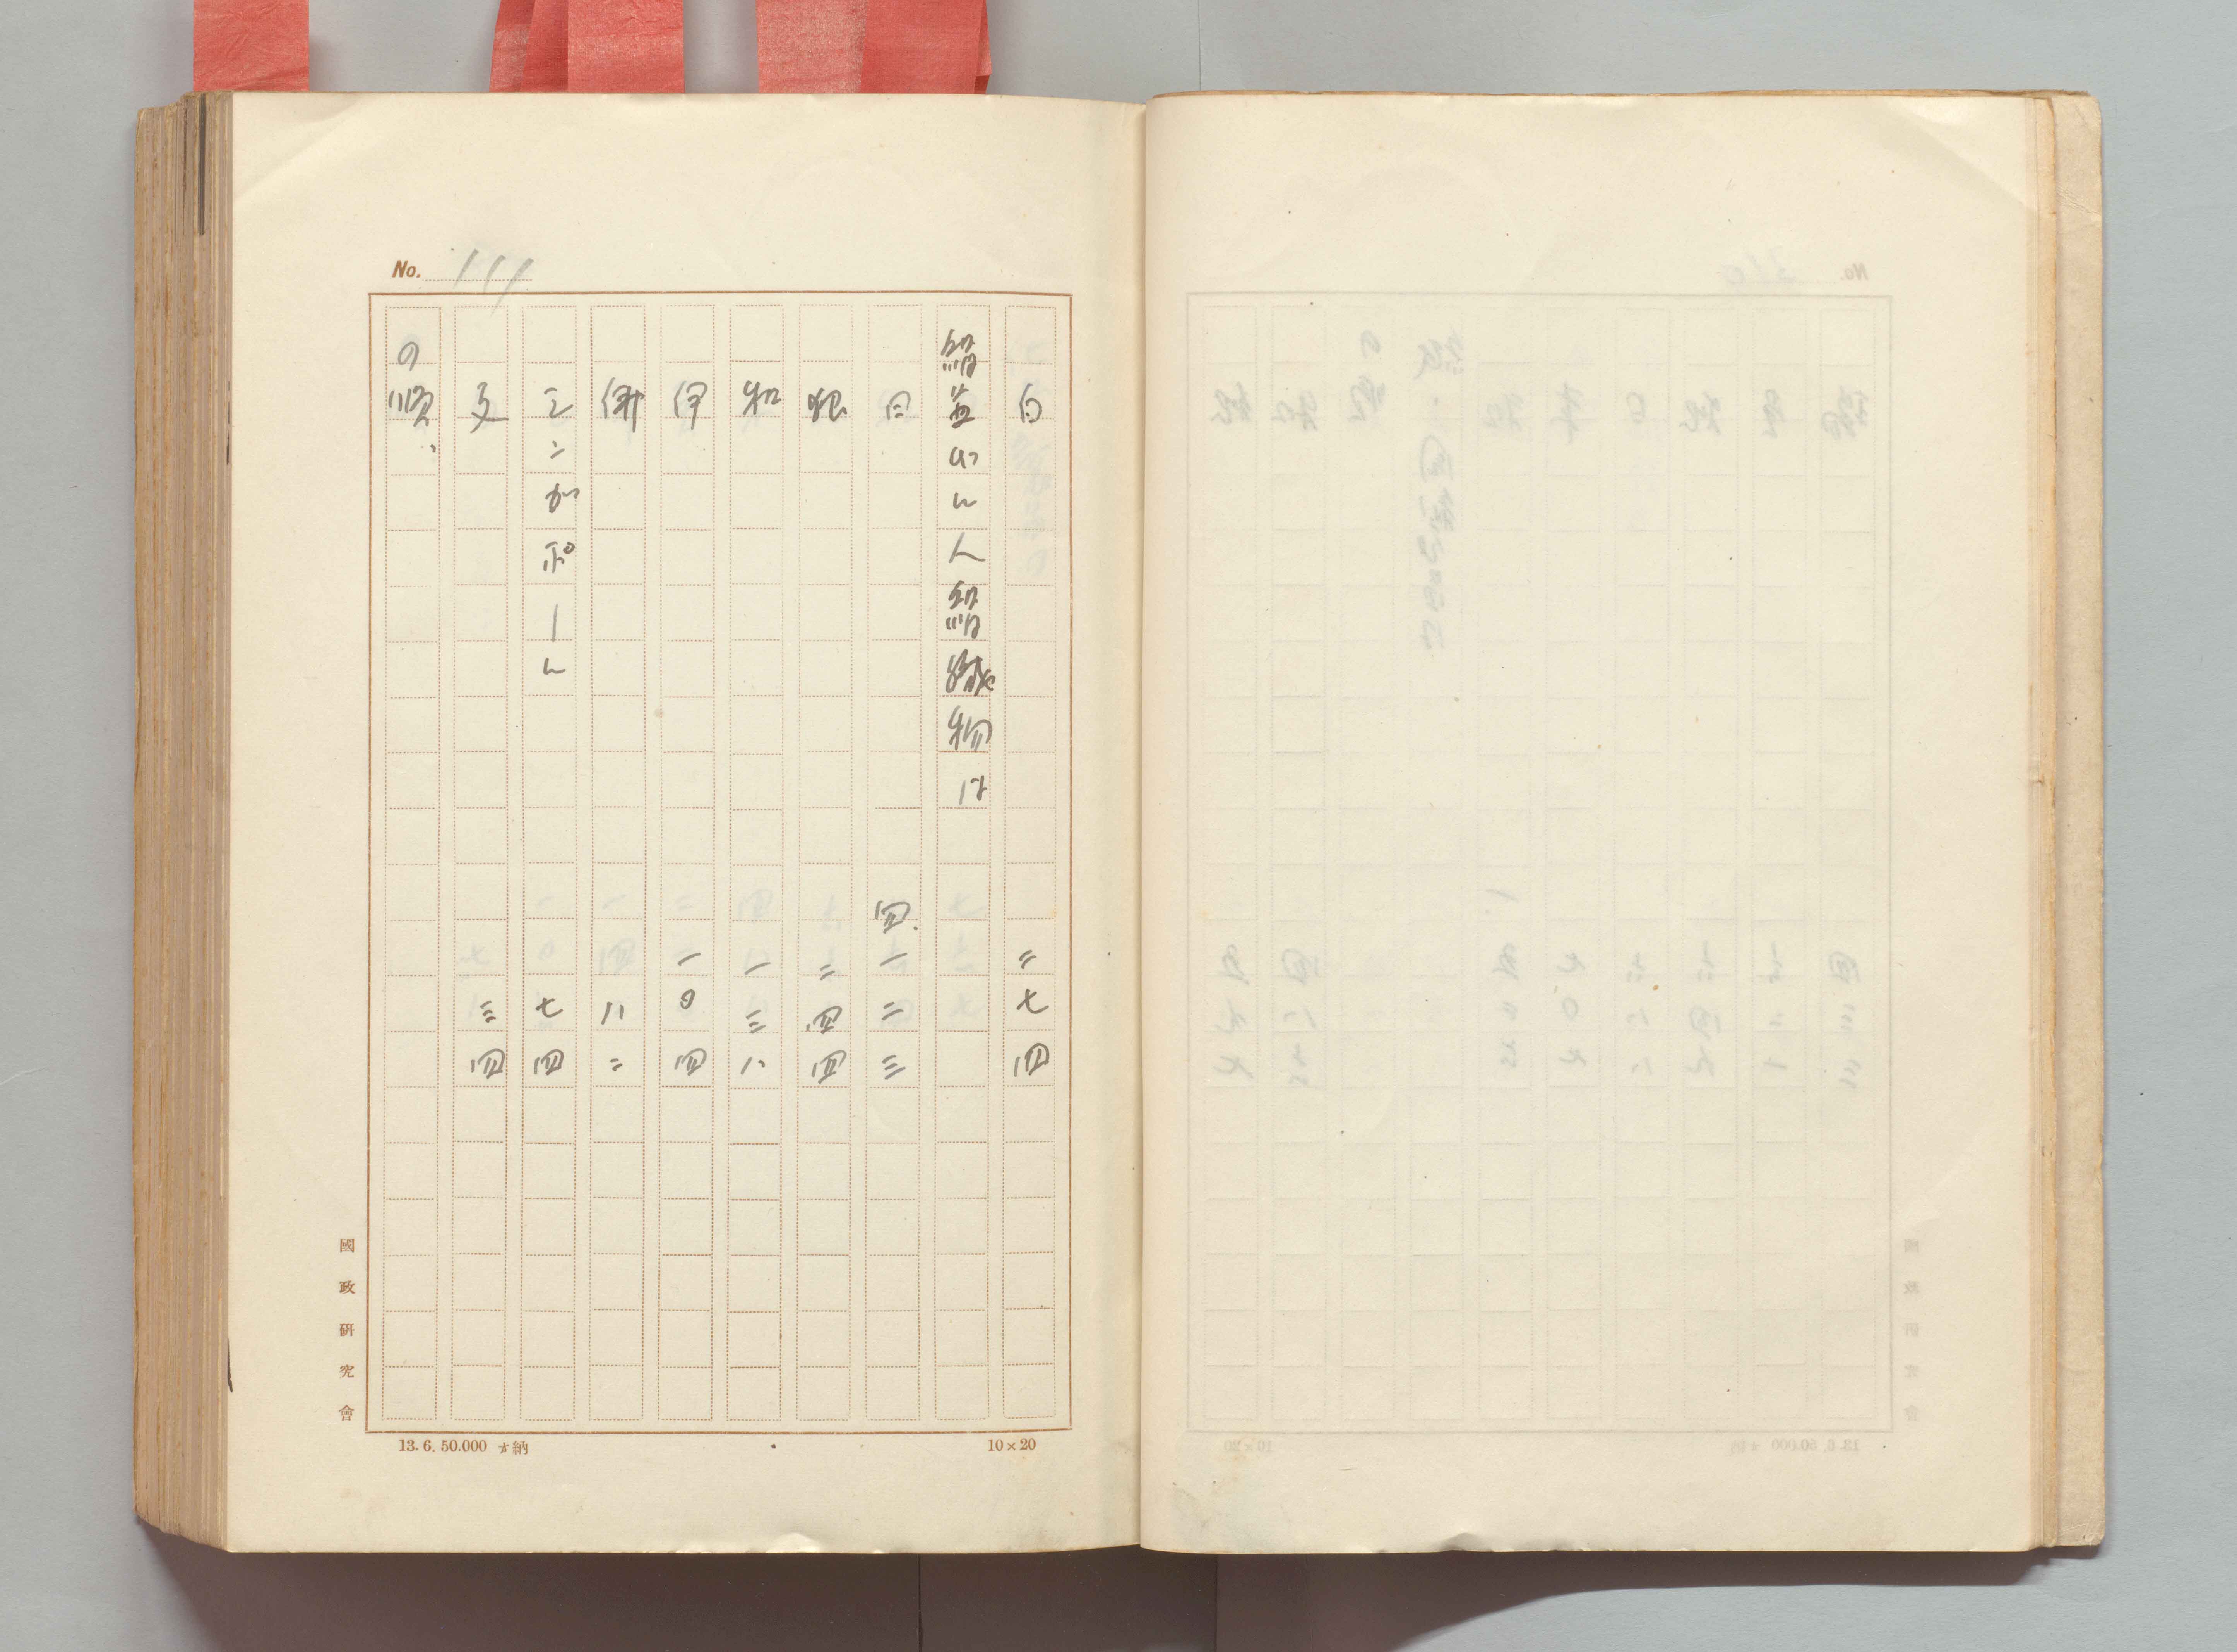 No. 111
白　二七四
絹並びに人絹織物は
日　四.一二三
二四四
和　一三八
伊　一〇四
佛　八二
シンガポール　七四
支　三四
の順、
國政研究會
13.6.50.000 納
10×20